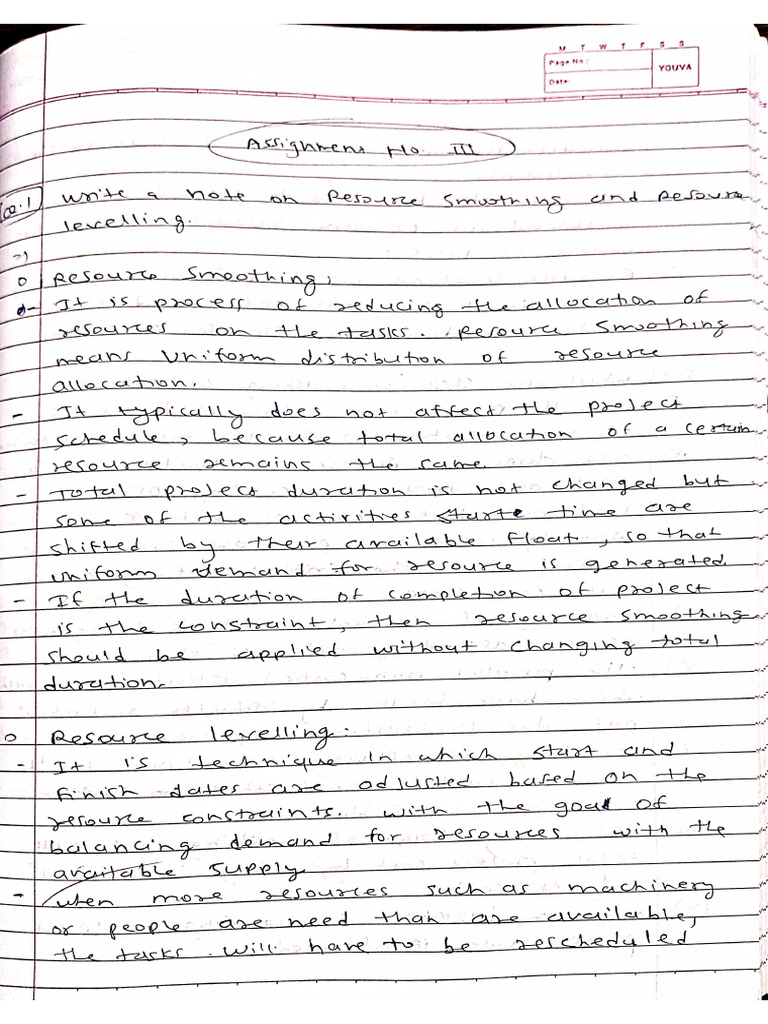 M T W T F S S
Page No.:
YOUVA
Date:
Assignment No. III
Q.1 Write a note on Resource Smoothing and Resource
levelling.
→
o Resource Smoothing,
- It is process of reducing the allocation of
resources on the tasks. Resource Smoothing
means Uniform distribution of resource
allocation.
- It typically does not affect the project
schedule, because total allocation of a certain
resource remains the same
- Total project duration is not changed but
some of the activities start time are
shifted by their available float, so that
uniform demand for resource is generated.
- If the duration of completion of project
is the constraint, then resource smoothing
should be applied without changing total
duration.
o Resource levelling:
- It is technique in which start and
finish dates are adjusted based on the
resource constraints. with the goal of
balancing demand for resources with the
available supply
- when more resources such as machinery
or people are need than are available,
the tasks will have to be rescheduled